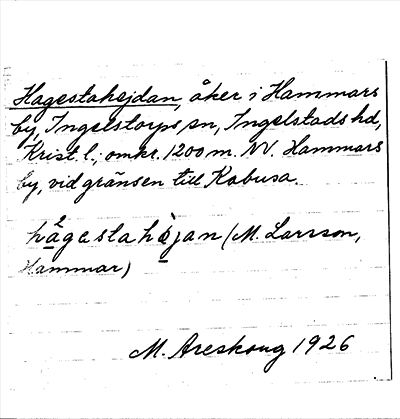 Hagestahejdan, åker i Hammars
by, Ingelstorps sn, Ingelstads hd,
Krist. l.; omkr. 1200 m. NV. Hammars
by, vid gränsen till Kabusa.
hagestahöjan (M. Larsson,
Hammar)
M. Areskoug 1926